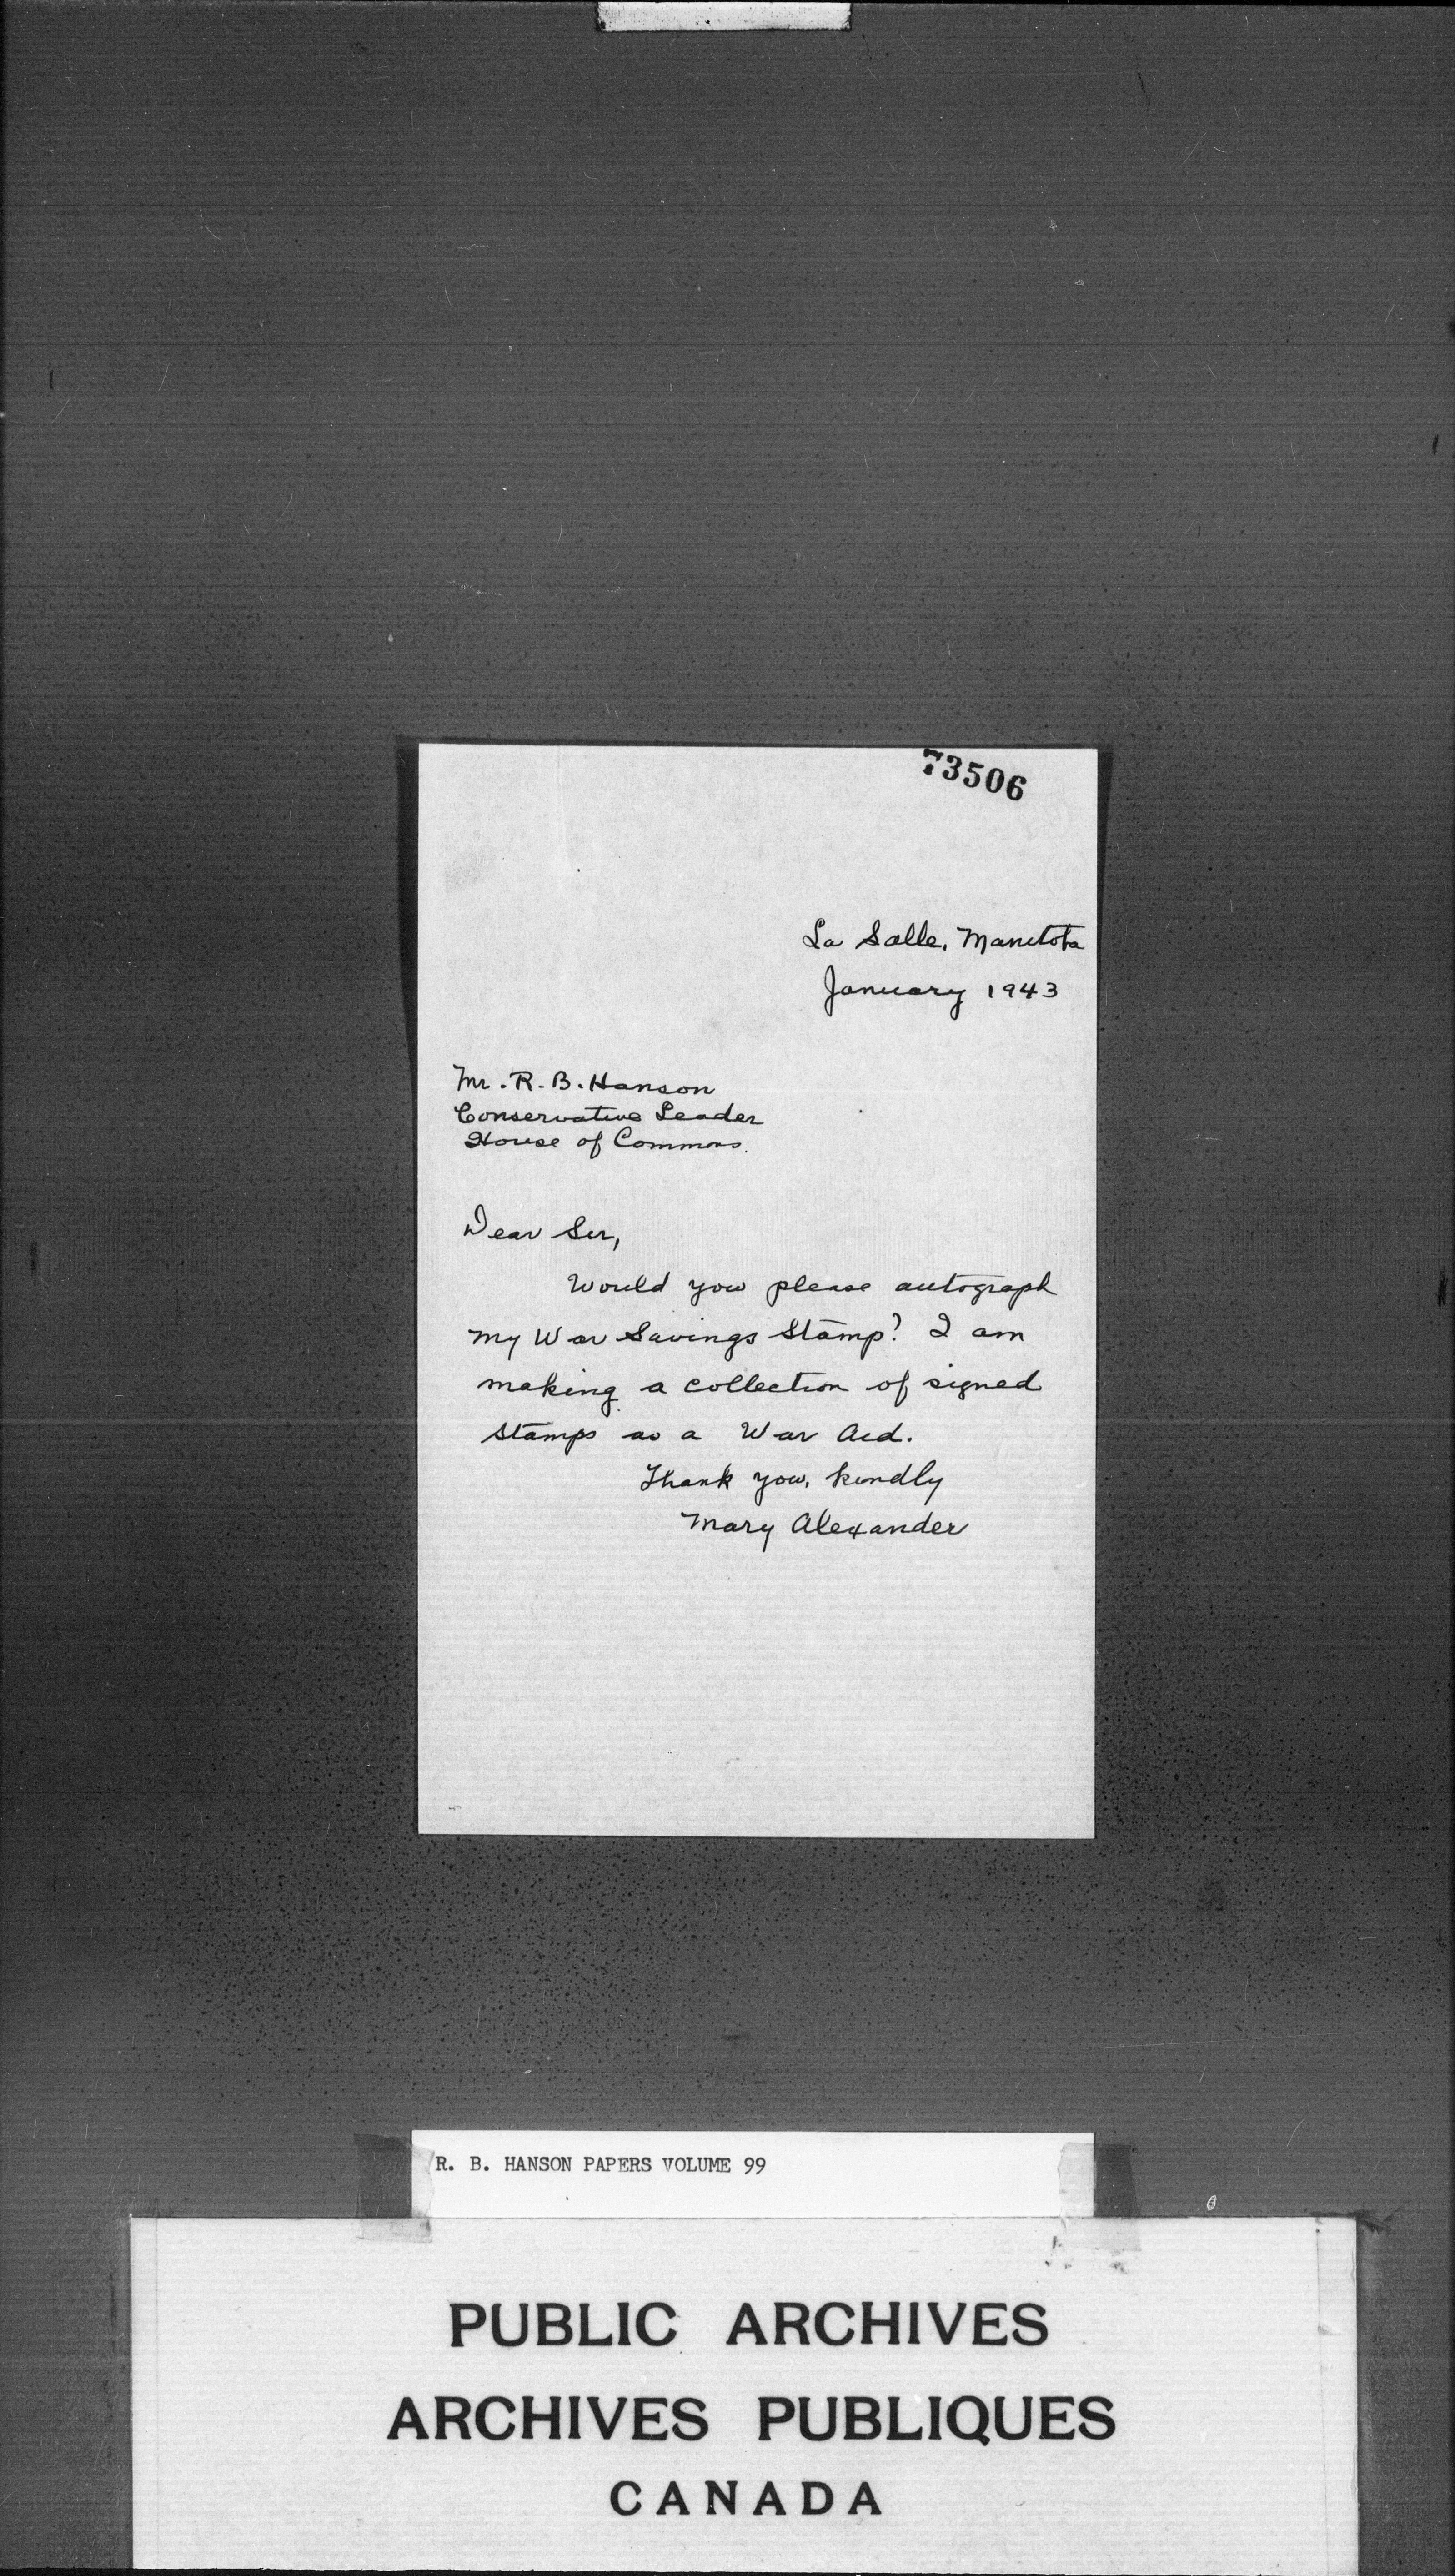 73506
La Salle, Manitoba
January 1943
Mr. R. B. Hanson
Conservative Leader
House of Commons.
Dear Sir,
Would you please autograph
my War Savings Stamp? I am
making a collection of signed
stamps as a War Aid.
Thank you, kindly
Mary Alexander
R. B. HANSON PAPERS VOLUME 99
PUBLIC ARCHIVES
ARCHIVES PUBLIQUES
CANADA